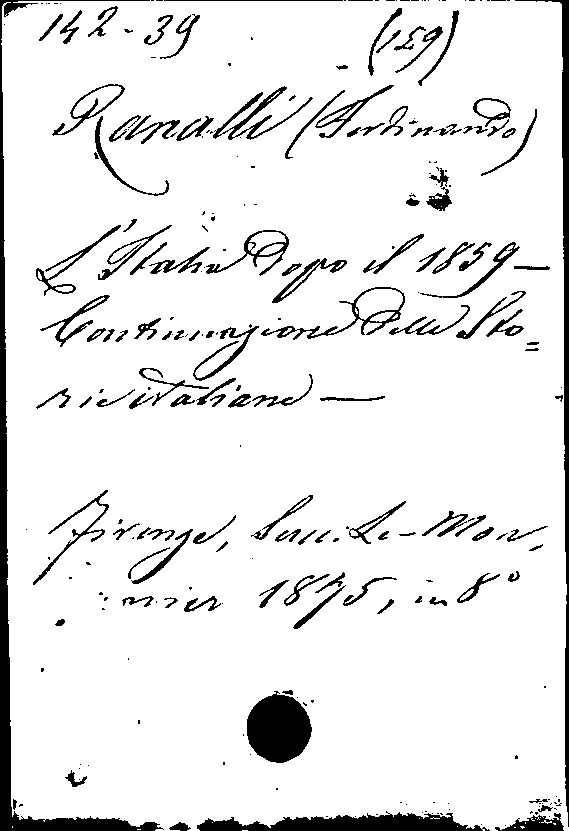 142-39 (159)
Ranalli (Ferdinando)
L'Italia dopo il 1859 —
Continuazione delle Sto=
rie italiane —
Firenze, Succ. Le-Mon,
nier 1875, in 8°